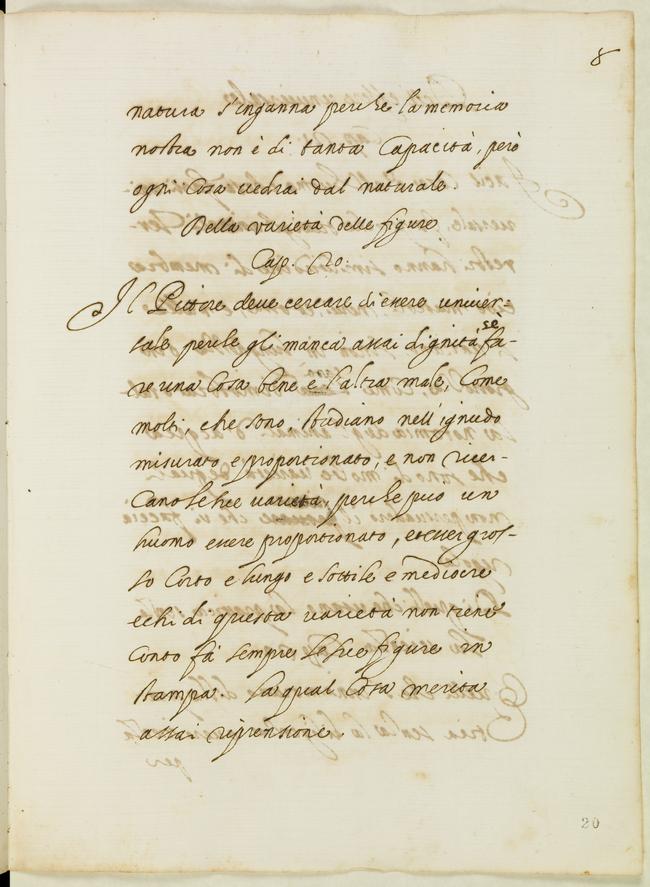 8
natura s'inganna perche la memoria
nostra non è di tanta Capacità, però
ogni Cosa vedrai dal naturale.
Della varietà delle figure
Cap. 20.
Il Pittore deve cercare di essere univer-
sale perche gli manca assai dignità, sè fa-
re una Cosa bene e l'altra male, Come
molti, che sono, studiano nell'ignudo
misurato e proportionato, e non ricer-
cano le sue varietà, perche puo un
huomo essere proportionato, et esser gros-
so Corto e lungo e sottile e mediocre
e chi di questa varietà non tiene
Conto fà sempre le sue figure in
stampa. La qual Cosa merita
assai riprensione.
20